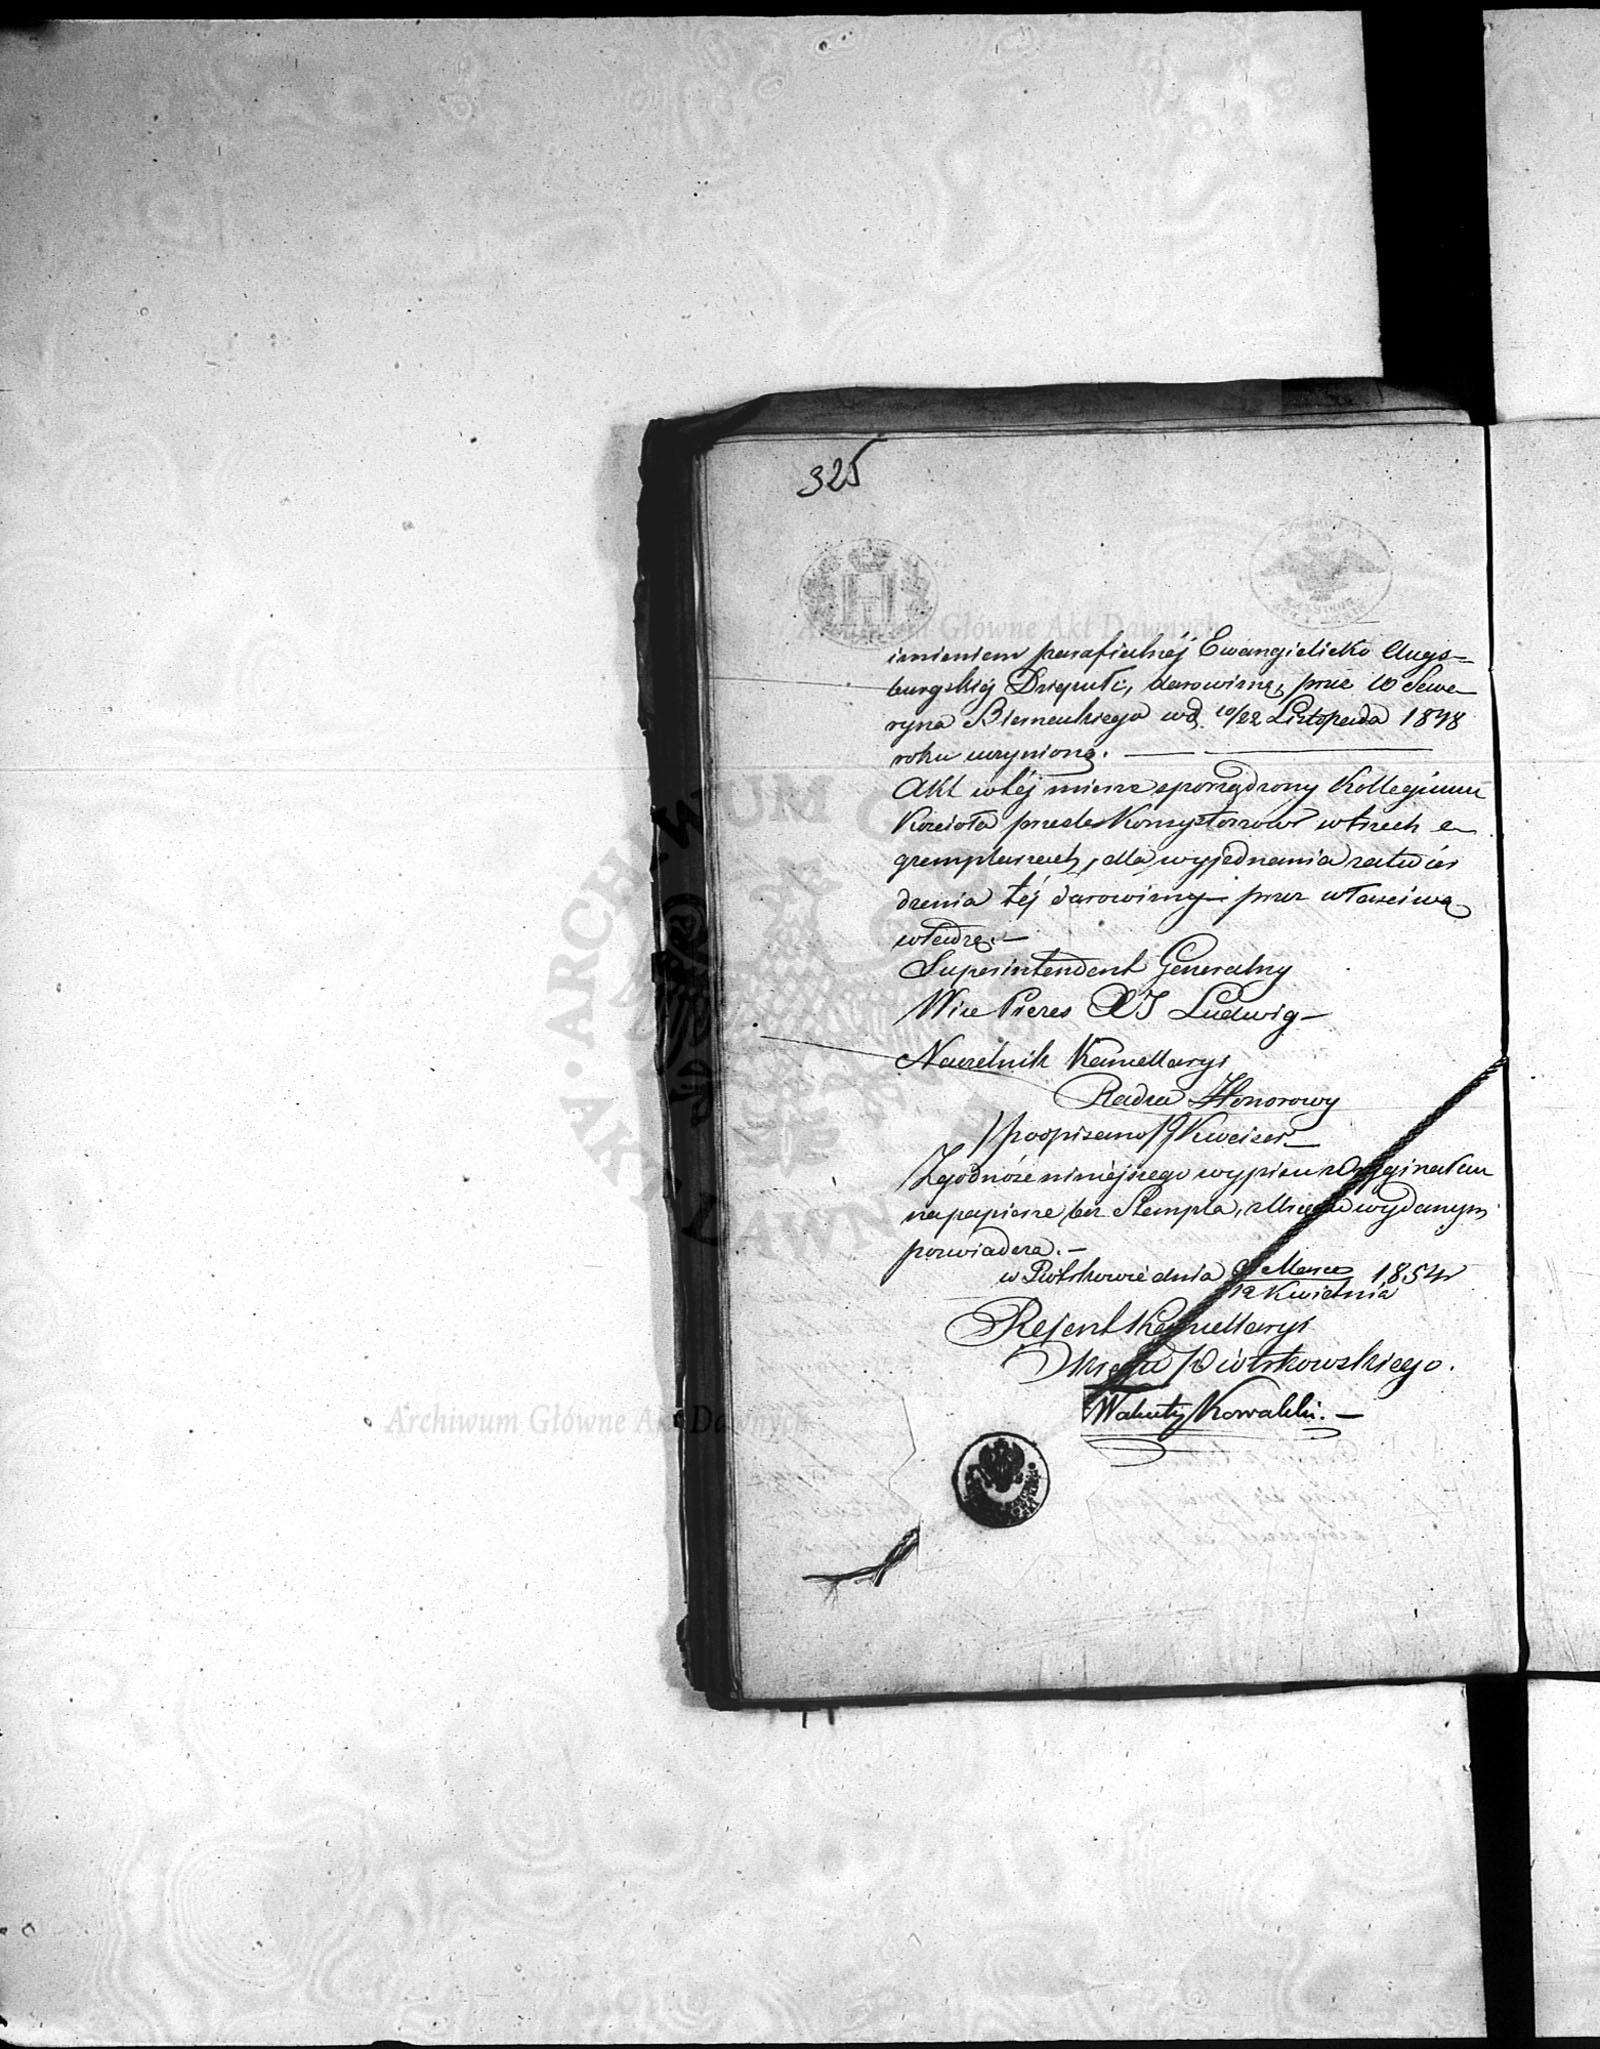 325
imieniem parafialnéj Ewangielicko Augs-
burgskiéj Dziepułć, darowiznę, prze W Sewe-
ryna Biernackiego wd. 10/22 Listopada 1848
roku uczynioną. —
Akt w téj mierze sporządzony Kollegium
Kościoła przedes Konsystorzowi w trzech e-
gzemplarzach, dla wyjednania zatwier
dzenia téj darowizny przez właściwą
władzę. —
Superintendent Generalny
Wice Prezes Ludwig —
Naczelnik Kancellaryi
Radca Honorowy
/podpisano/ Kweiser —
Zgodność niniejszego wypisu z Orygynałem
na papierze bez Stempla, wydanym
poswiadcza. —
w Piotrkowie dnia Marca 1854 r
12 Kwietnia
Rejent Kancellaryi
Okręgu Piotrkowskiego.
Walenty Kowalski. —
Archiwum Główne Akt Dawnych
Archiwum Główne Akt Dawnych